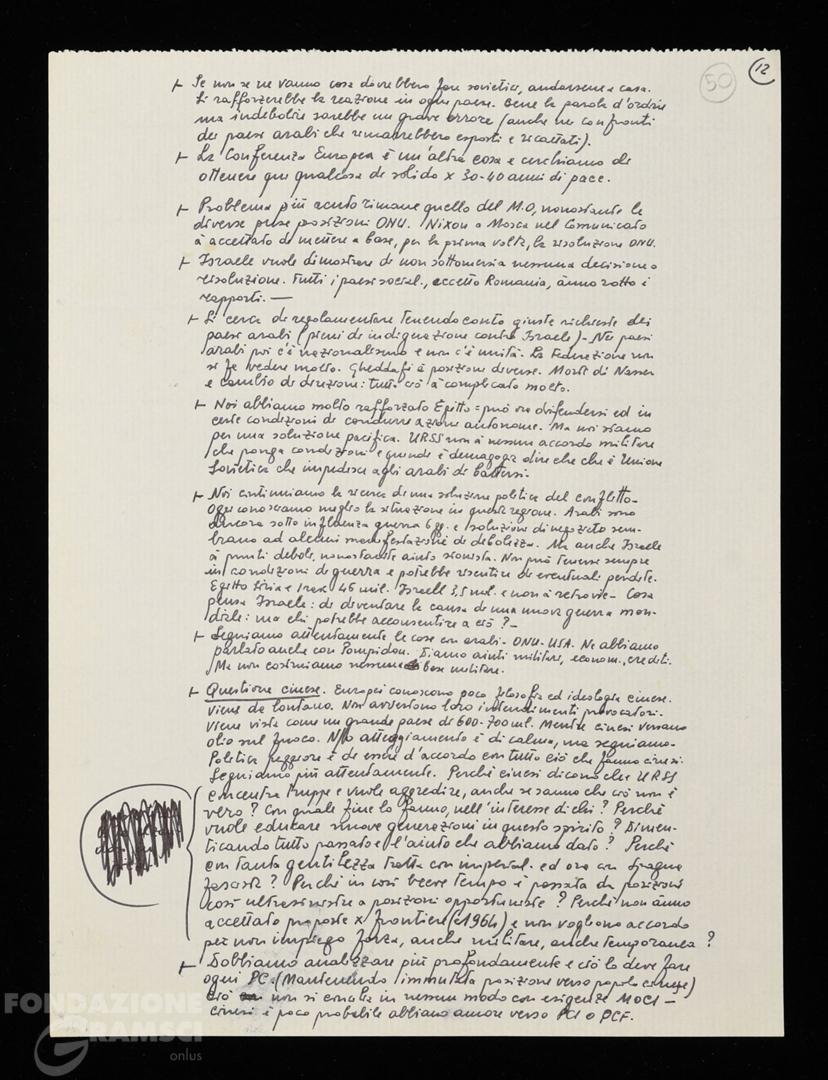 50
12
+ Se non se ne vanno cosa dovrebbero fare sovietici, andarsene a casa.
Si rafforzerebbe la reazione in ogni paese. Bene la parola d'ordine
ma indebolire sarebbe un grave errore (anche nei confronti
dei paesi arabi che rimarrebbero esposti e ricattati).
+ La Conferenza Europea è un'altra cosa e cerchiamo di
ottenere qui qualcosa di solido x 30-40 anni di pace.
+ Problema più acuto rimane quello del M.O, nonostante le
diverse prese posizioni ONU. Nixon a Mosca nel Comunicato
à accettato di mettere a base, per la prima volta, la risoluzione ONU.
+ Israele vuole dimostrare di non sottomettersi a nessuna decisione o
risoluzione. Tutti i paesi social., eccetto Romania, ànno rotto i
rapporti. —
+ Si cerca di regolamentare tenendo conto giuste richieste dei
paesi arabi (pieni di indignazione contro Israele) - Nei paesi
arabi poi c'è nazionalismo e non c'è unità. La Federazione non
si fa vedere molto. Gheddafi à posizioni diverse. Morte di Nasser
e cambio di direzione: tutto ciò à complicato molto.
+ Noi abbiamo molto rafforzato Egitto = può ora difendersi ed in
certe condizioni di condurre azione autonome. Ma noi siamo
per una soluzione pacifica. URSS non à nessun accordo militare
che ponga condizioni e quindi è demagogia dire che che è Unione
Sovietica che impedisce agli arabi di battersi.
+ Noi continuiamo la ricerca di una soluzione politica del conflitto-
oggi conosciamo meglio la situazione in queste regione. Arabi sono
ancora sotto influenza guerra 6 gg. e soluzione di negoziato sem-
brano ad alcuni manifestazioni di debolezza. Ma anche Israele
à punti deboli, nonostante aiuto sionista. Non può tenersi sempre
in condizioni di guerra e potrebbe risentire di eventuali perdite.
Egitto Siria e Irak 46 mil. Israele 3,5 mil. e non à retrovie - Cosa
pensa Israele: di diventare la causa di una nuova guerra mon-
diale: ma chi potrebbe acconsentire a ciò? -
+ Seguiamo attentamente le cose con arabi - ONU - USA. Ne abbiamo
parlato anche con Pompidou. Diamo aiuti militari, econom., crediti.
Ma non costruiamo nessuna base militare.
+ Questione cinese. Europei conoscono poco filosofia ed ideologia cinese.
Viene da lontano. Non avvertono loro intendimenti provocatori.
Viene vista come un grande paese di 600-700 mil. Mentre cinesi versano
olio sul fuoco. N/o atteggiamento è di calma, ma seguiamo.
Politica peggiore è di essere d'accordo con tutto ciò che fanno cinesi.
Seguiamo più attentamente. Perché cinesi dicono che URSS
concentra truppe e vuole aggredire, anche se sanno che ciò non è
vero? Con quale fine lo fanno, nell'interesse di chi? Perché
vuole educare nuove generazioni in questo spirito? Dimen-
ticando tutto passato e l'aiuto che abbiamo dato? Perché
con tanta gentilezza tratta con imperial. ed ora con Spagna
fascista? Perché in così breve tempo è passata da posizioni
così ultrasinistre a posizioni opportuniste? Perché non ànno
accettato proposte x frontiere (1964) e non vogliono accordo
per non impiego forza, anche militare, anche temporanea?
+ Dobbiamo analizzare più profondamente e ciò lo deve fare
ogni PC. (Mantenendo immutata posizione verso popolo cinese)
Ciò non si concilia in nessun modo con esigenze MOCI -
cinesi è poco probabile abbiano amore verso PCI o PCF.
FONDAZIONE
GRAMSCI
onlus